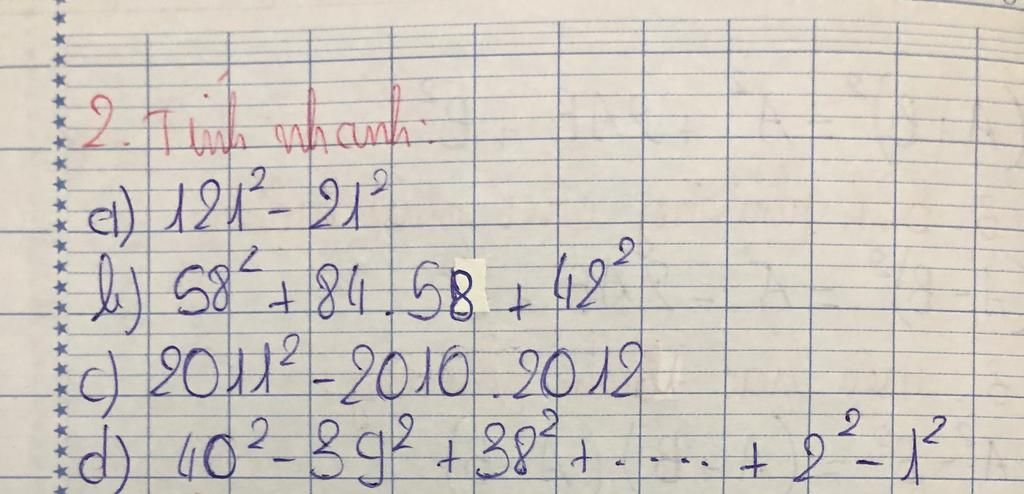 2. Tính nhanh:
a) 121² - 21²
b) 58² + 84 . 58 + 42²
c) 2011² - 2010 . 2012
d) 40² - 39² + 38² + ..... + 2² - 1²